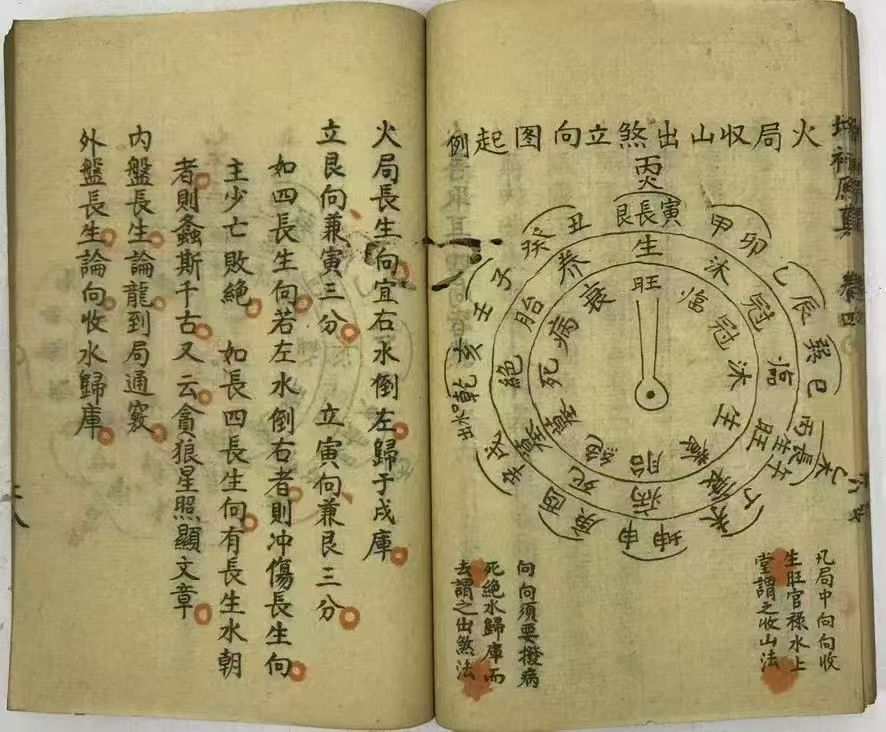 火局收山出煞立向图起例
丙火
艮長寅
甲卯
乙辰
巽巳
丙午
長生
乙木
丁未
坤申
庚酉
辛戌
乾亥
壬子
癸丑
生
沐
冠
临
旺
衰
病
死
墓
絶
胎
养
旺
临
冠
沐
生
養
胎
絶
墓
死
病
衰
凡局中向向收
生旺官禄水上
堂謂之收山法
向向須要撥病
死絶水歸庫而
去謂之出煞法
卷四
火局長生向宜右水倒左歸于戌庫
立艮向兼寅三分 立寅向兼艮三分
如四長生向若左水倒右者則冲傷長生向
主少亡敗絶 如長四長生向有長生水朝
者則螽斯千古又云貪狼星照顯文章
内盤長生論龍到局通竅
外盤長生論向收水歸庫